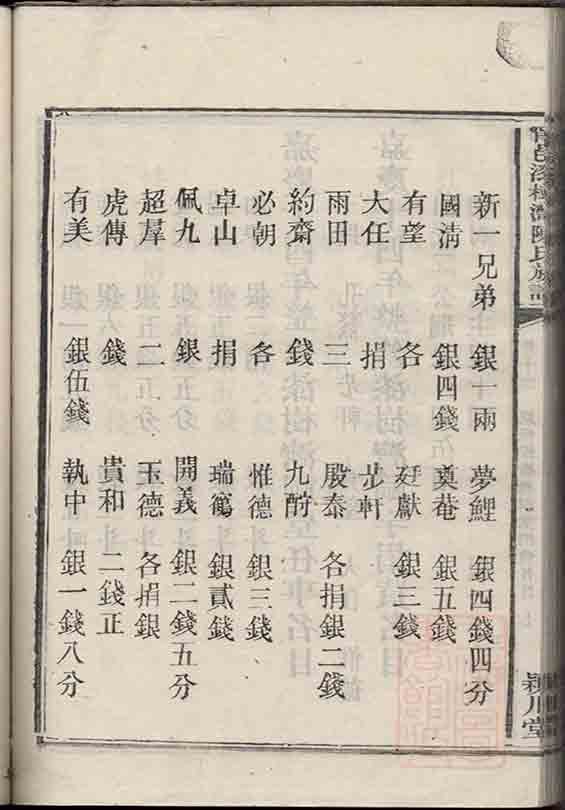 邑漆樹灣陳氏族譜
穎川堂
新一兄弟 銀十兩 夢鯉 銀四錢四分
國清 銀四錢 奠菴 銀五錢
有望 各 廷獻 銀三錢
大任 捐 步軒
雨田 三 殷泰 各捐銀二錢
約齋 錢 九酧
必朝 各 惟德 銀三錢
卓山 捐 瑞鶴 銀貳錢
佩九 銀 開義 銀二錢五分
超羣 二 玉德 各捐銀
虎傳 錢 貴和 二錢正
有美 銀伍錢 執中 銀一錢八分